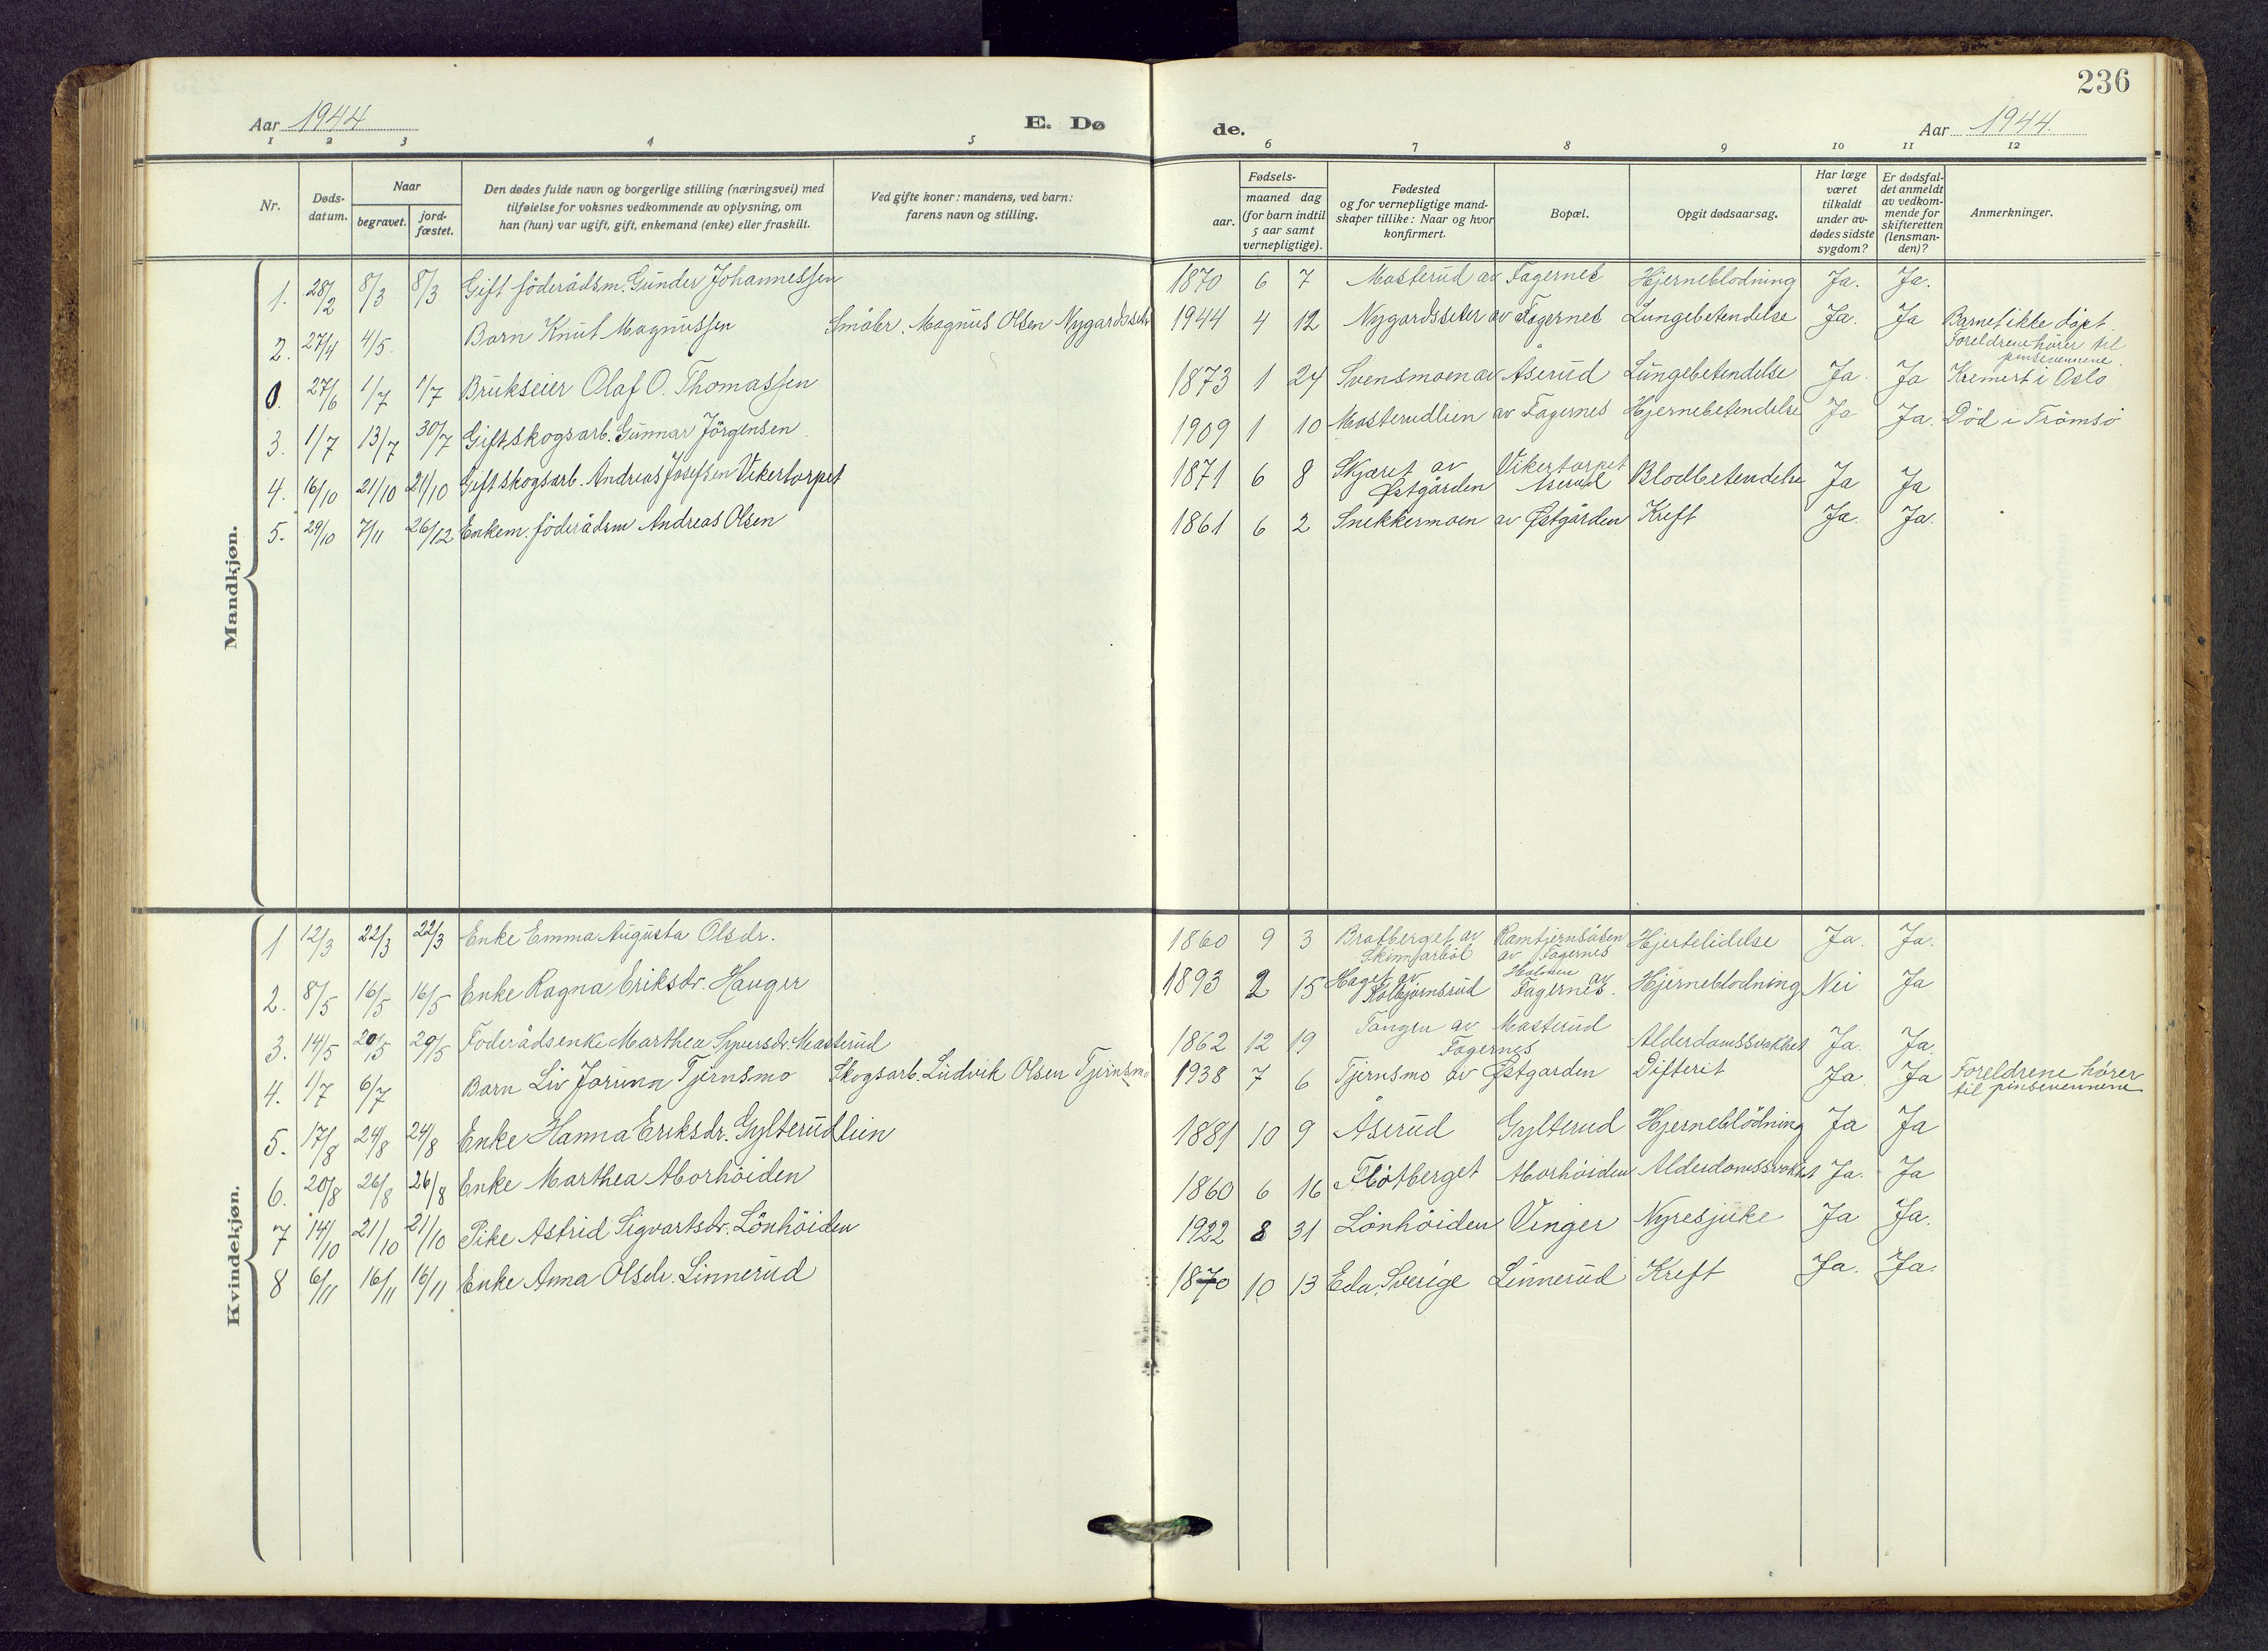 236
Aar 1944 E. Dø de. Aar 1944.
1 2 3 4 5 6 7 8 9 10 11 12
Nr. Døds-datum. Naar begravet. jord-fæstet. Den dødes fulde navn og borgerlige stilling (næringsvei) med tilføielse for voksnes vedkommende av oplysning, om han (hun) var ugift, gift, enkemand (enke) eller fraskilt. Ved gifte koner: mandens, ved barn: farens navn og stilling. Fødsels- aar. maaned dag (for barn indtil 5 aar samt vernepligtige). Fødested og for vernepligtige mand-skaper tillike: Naar og hvor konfirmert. Bopæl. Opgit dødsaarsag. Har læge været tilkaldt under av-dødes sidste sygdom? Er dødsfal-det anmeldt av vedkom-mende for skifteretten (lensman-den)? Anmerkninger.
Mandkjøn.
1. 28/2 8/3 8/3 Gift föderådsm. Gunder Johannessen 1870 6 7 Masterud av Fagernes Hjerneblodning Ja. Ja.
2. 27/4 4/5 Barn Knut Magnussen Småbr. Magnus Olsen Nygardsseter 1944 4 12 Nygardsseter av Fagernes Lungebetendelse Ja. Ja Barnet ikke döpt. Foreldrene hører til pinsevennene
0. 27/6 1/7 1/7 Brukseier Olaf O. Thomassen 1873 1 24 Svensmoen av Åserud Lungebetendelse Ja. Ja Kremert i Oslo
3. 1/7 13/7 30/7 Gift skogsarb. Gunnar Jörgensen 1909 1 10 Masterudlien av Fagernes Hjernebetendelse Ja Ja. Död i Tromsö
4. 16/10 21/10 21/10 Gift skogsarb. Andreas Josefsen Vikertorpet 1871 6 8 Skjæret av Østgården Vikertorpet Åserud Blodbetendelse Ja Ja
5. 29/10 7/11 26/12 Enkem. föderådsm Andreas Olsen 1861 6 2 Snekkermoen av Østgården Kreft Ja. Ja.
Kvindekjøn.
1 12/3 22/3 22/3 Enke Emma Augusta Olsdr. 1860 9 3 Bratberget av Skinnarböl Ramtjernsåsen av Fagernes Hjertelidelse Ja. Ja.
2. 8/5 16/5 16/5 Enke Ragna Eriksdr. Hauger 1893 2 15 Haget av Kolbjörnsrud Holmen av Fagernes. Hjerneblodning Nei Ja
3. 14/5 20/5 29/5 Föderådsenke Marthea Syversdr. Masterud 1862 12 19 Tangen av Fagernes Masterud Alderdomssvakhet Ja. Ja.
4. 1/7 6/7 Barn Liv Jorunn Tjernsmo Skogsarb. Ludvik Olsen Tjernsmo 1938 7 6 Tjernsmo av Østgarden Difterit Ja Ja Foreldrene hører til pinsevennene
5. 17/8 24/8 24/8 Enke Hanna Eriksdr. Gylterudlien 1881 10 9 Åserud Gylterud Hjerneblödning Ja Ja
6. 20/8 26/8 26/8 Enke Marthea Aborhöiden 1860 6 16 Flötberget Aborhöiden Alderdomssvakhet Ja. Ja
7 14/10 21/10 21/10 Pike Astrid Sigvartsdr. Lönhöiden 1922 8 31 Lönhöiden Vinger Nyresjuke Ja Ja.
8 6/11 16/11 16/11 Enke Anna Olsdr. Linnerud 1870 10 13 Eda, Sverige Linnerud Kreft Ja. Ja.